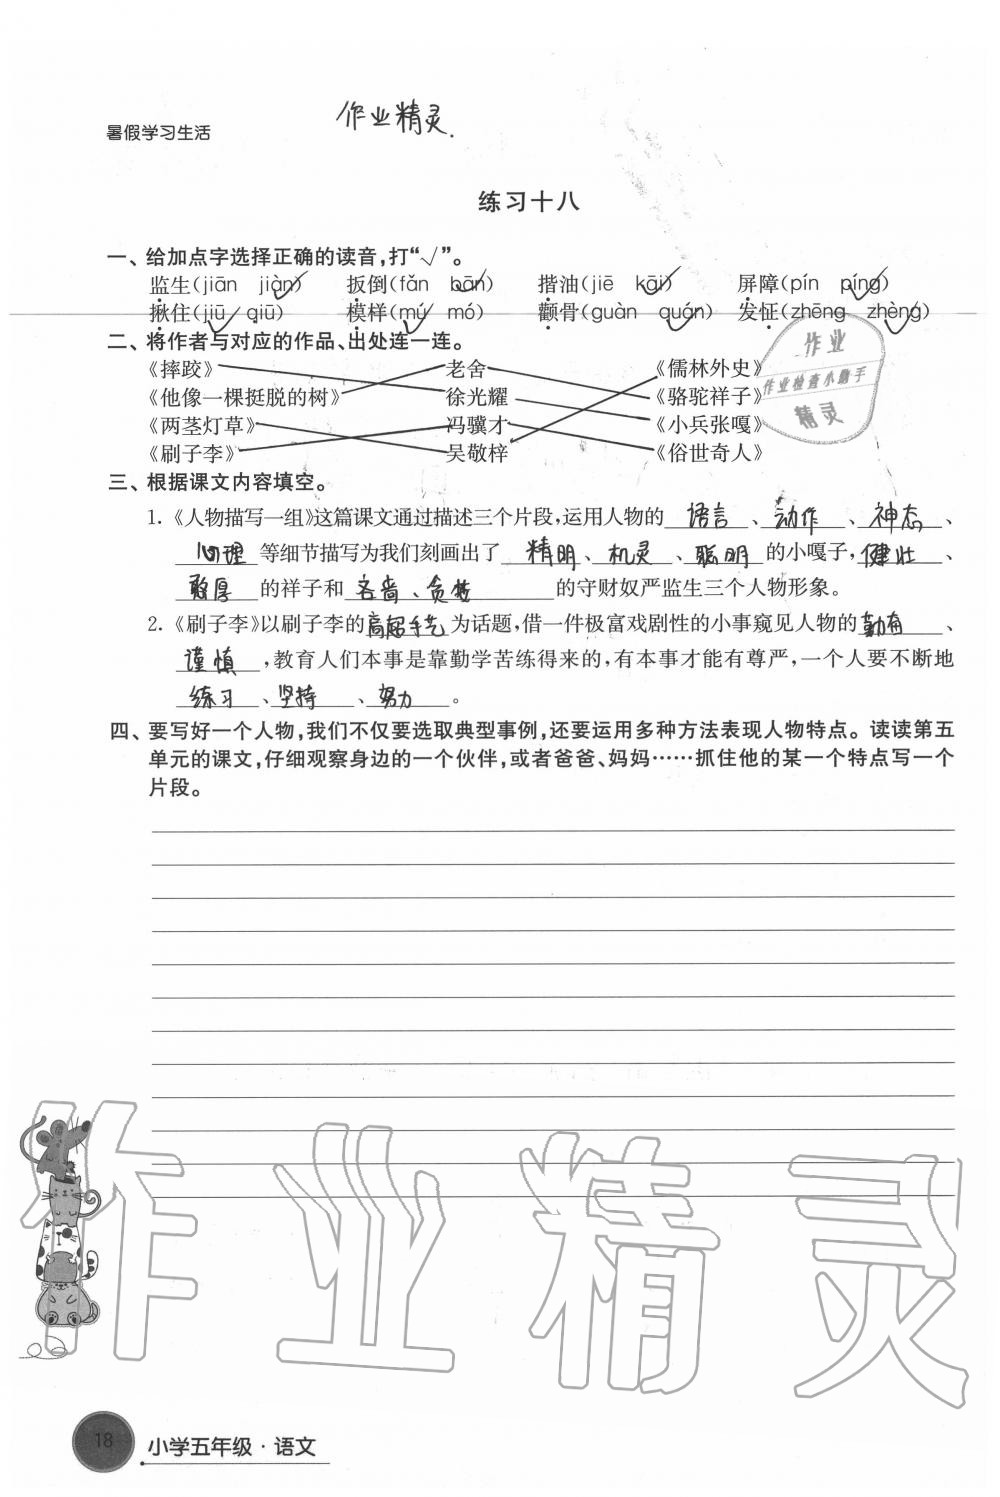 暑假学习生活
作业精灵.
练习十八
一、给加点字选择正确的读音,打“√”。
监生(jiān jiàn) 扳倒(fǎn bān) 揩油(jiē kāi) 屏障(pín píng)
揪住(jiū qiū) 模样(mú mó) 颧骨(guàn quán) 发怔(zhēng zhèng)
二、将作者与对应的作品、出处连一连。
《摔跤》 老舍 《儒林外史》
《他像一棵挺脱的树》 徐光耀 《骆驼祥子》
《两茎灯草》 冯骥才 《小兵张嘎》
《刷子李》 吴敬梓 《俗世奇人》
作业
作业检查小助手
精灵
三、根据课文内容填空。
1.《人物描写一组》这篇课文通过描述三个片段,运用人物的 语言 、 动作 、 神态 、
心理 等细节描写为我们刻画出了 精明 、 机灵 、 聪明 的小嘎子, 健壮 、
憨厚 的祥子和 吝啬、贪婪 的守财奴严监生三个人物形象。
2.《刷子李》以刷子李的 高超手艺 为话题,借一件极富戏剧性的小事窥见人物的 勤奋 、
谨慎 ,教育人们本事是靠勤学苦练得来的,有本事才能有尊严,一个人要不断地
练习 、 坚持 、 努力 。
四、要写好一个人物,我们不仅要选取典型事例,还要运用多种方法表现人物特点。读读第五
单元的课文,仔细观察身边的一个伙伴,或者爸爸、妈妈……抓住他的某一个特点写一个
片段。
作业精灵
18 小学五年级·语文